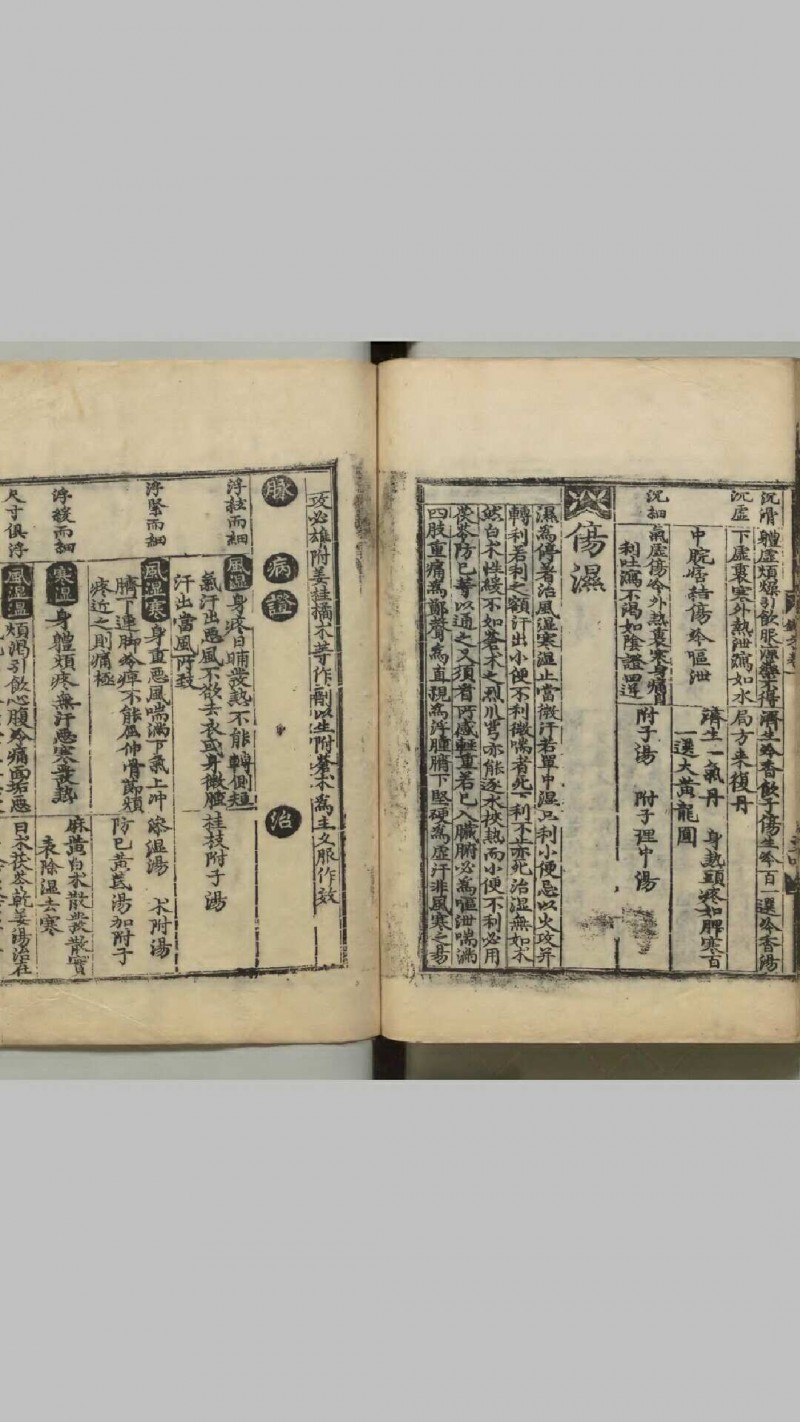 沉滑
體虛煩燥引飲服涼藥不得
濟生冷香飲子傷生冷百一選冷香湯
沉虛
下虛裏寒外熱泄瀉如水
局方来復丹
中脘痞結傷冷嘔泄
濟生一氣丹 身熱頭疼如脾寒百
一選大黃龍圓
沉細
氣虛傷冷外熱裏寒身痛自
利吐瀉不渴如陰證四逆
附子湯 附子理中湯
傷濕
濕爲停著治風濕寒濕止當微汗若單中濕只利小便忌以火攻并
轉利若利之額汗出小便不利微喘者死下利不止亦死治濕無如术
然白术性緩不如蒼术之烈川芎亦能逐水挾熱而小便不利必用
茯苓防已等以通之又須看所感輕重若已入臟腑必爲嘔泄喘滿
四肢重痛爲鄭聲爲直視爲浮腫臍下堅硬爲虛汗非風寒之昜
攻必雄附姜桂橘木等作劑以生附蒼术爲主久服作效
脉 病證 治
浮弦而細
風濕身疼日晡發熱不能轉側短
氣汗出惡風不欲去衣或身微腫
汗出當風所致
桂枝附子湯
浮緊而細
風濕寒身重惡風喘滿下氣上冲
臍下連脚冷痺不能屈伸骨節煩
疼近之則痛極
滲濕湯 术附湯
防已黃芪湯加附子
浮緩而細
寒濕身體煩疼無汗惡寒發熱
麻黃白术散發散實
表除濕去寒
尺寸俱浮
風濕溫煩渴引飲心腹冷痛面垢惡
白术茯苓乾姜湯治在